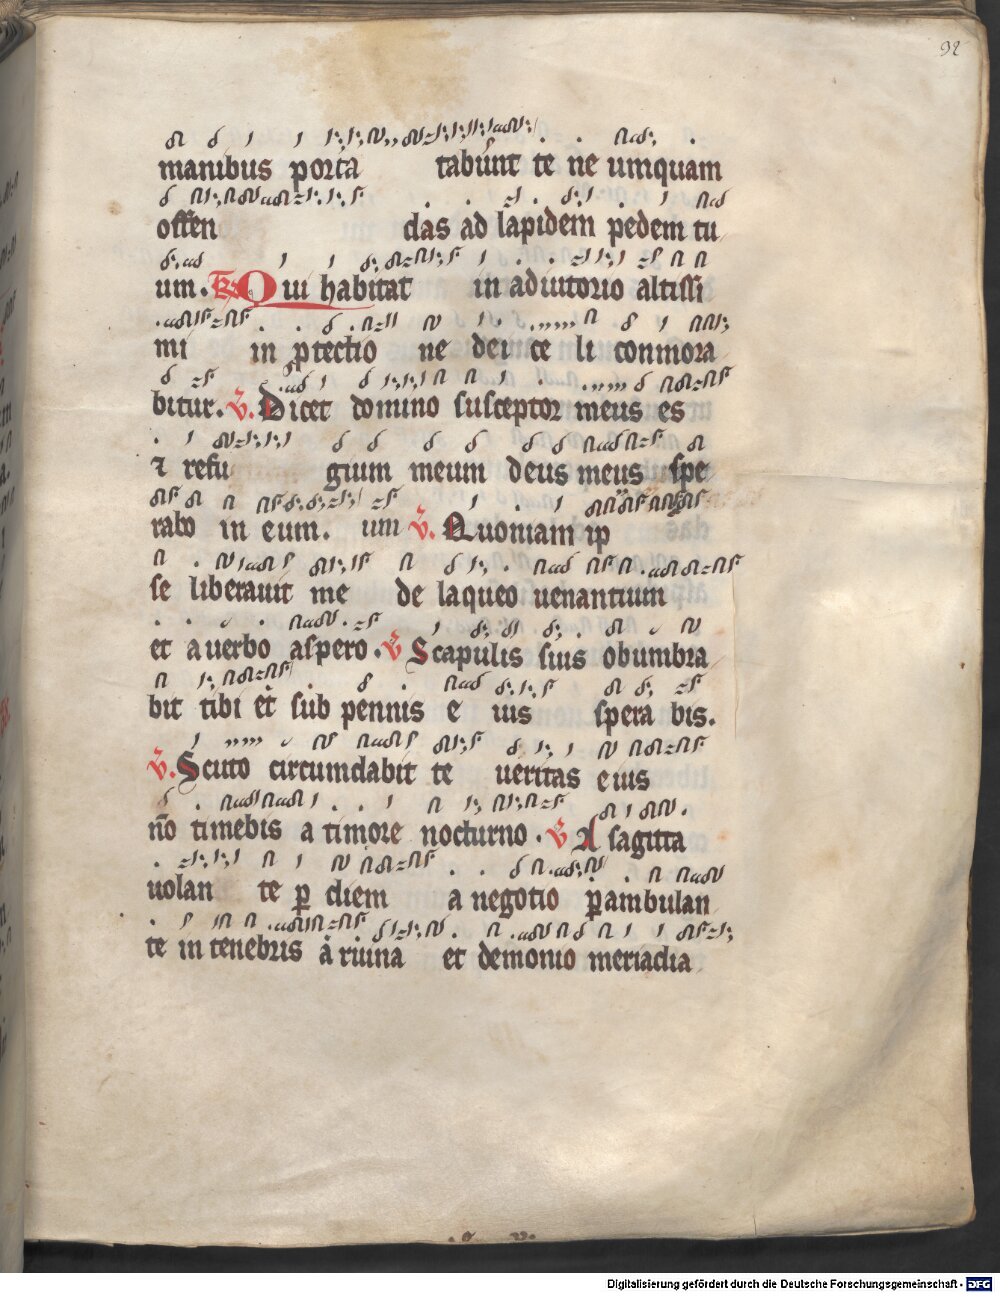 92
manibus porta tabunt te ne umquam
offen das ad lapidem pedem tu
um. Tr Qui habitat in adiutorio altissi
mi in ꝓtectio ne dei ce li conmora
bitur. V. Dicet domino susceptor meus es
⁊ refu gium meum deus meus spe
rabo in eum. um V. Quoniam ip
se liberauit me de laqueo uenantium
et a uerbo aspero. V Scapulis suis obumbra
bit tibi et sub pennis e ius spera bis.
V. Scuto circumdabit te ueritas eius
nō timebis a timore nocturno. V A sagitta
uolan te ꝑ diem a negotio ꝑambulan
te in tenebris a riuina et demonio meriadia
Digitalisierung gefördert durch die Deutsche Forschungsgemeinschaft - DFG